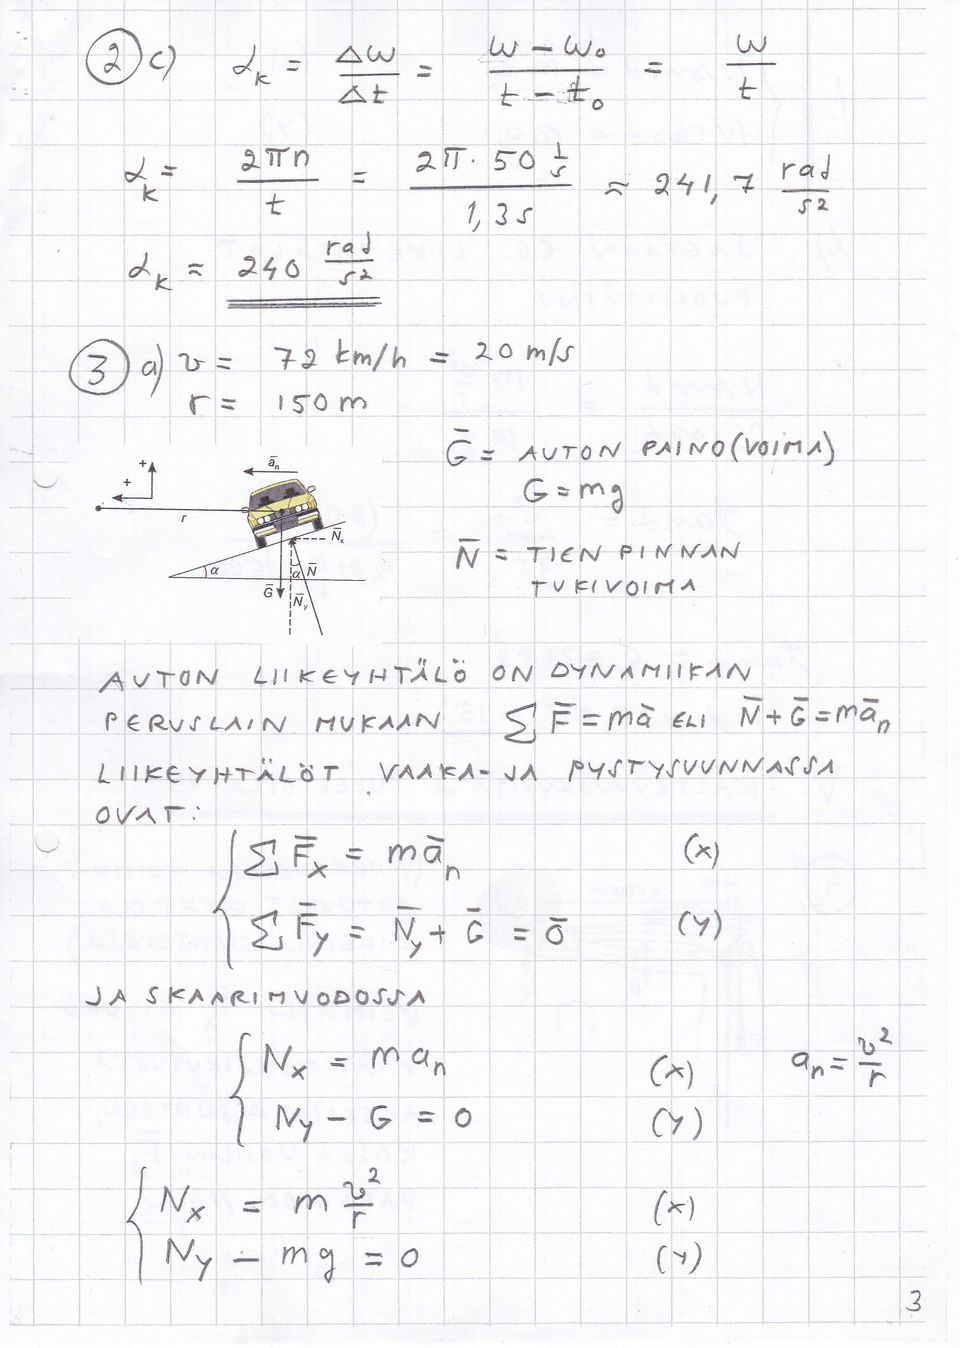 2 c) α_k = Δω/Δt = (ω - ω₀)/(t - t₀) = ω/t
α_k = 2πn/t = (2π · 50 1/s)/(1,3 s) ≈ 241,7 rad/s²
α_k ≈ 240 rad/s²
3 a) v = 72 km/h = 20 m/s
r = 150 m
Ḡ = AUTON PAINO(VOIMA)
G = mg
N̄ = TIEN PINNAN
TUKIVOIMA
+ + r āₙ N̄ₓ α α N̄ Ḡ N̄ᵧ
AUTON LIIKEYHTÄLÖ ON DYNAMIIKAN
PERUSLAIN MUKAAN ∑F̄ = mā ELI N̄ + Ḡ = māₙ
LIIKEYHTÄLÖT VAAKA- JA PYSTYSUUNNASSA
OVAT:
∑F̄ₓ = māₙ (X)
∑F̄ᵧ = N̄ᵧ + Ḡ = 0̄ (Y)
JA SKAARIMUODOSSA
Nₓ = maₙ (X) aₙ = v²/r
Nᵧ - G = 0 (Y)
Nₓ = m v²/r (X)
Nᵧ - mg = 0 (Y)
3